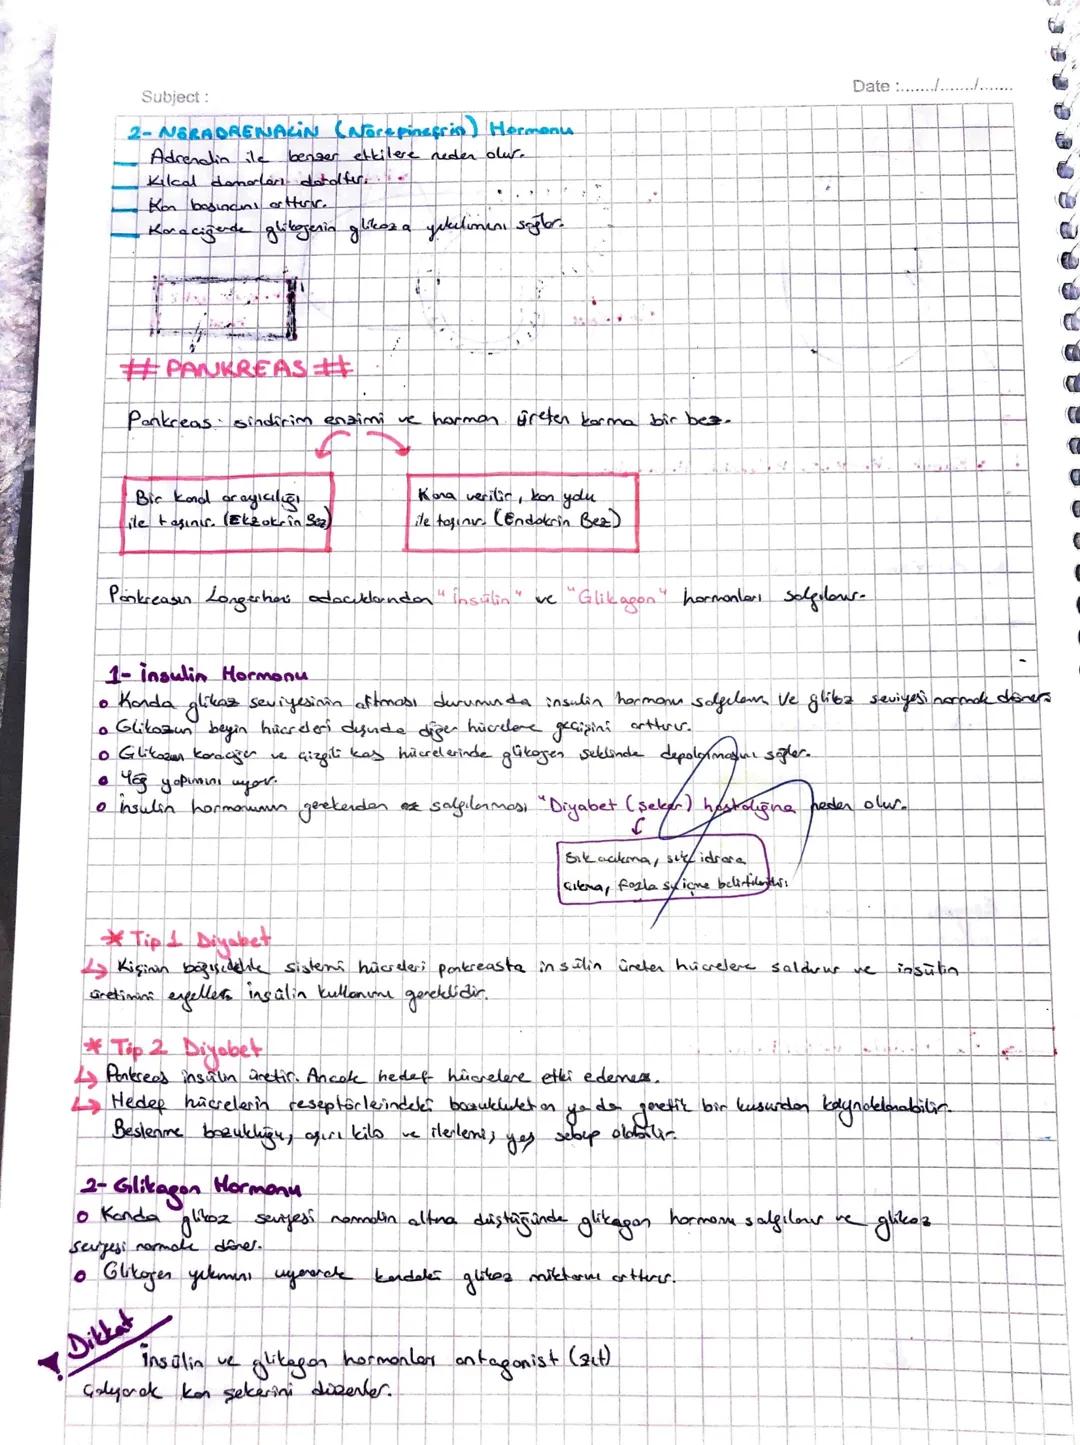 Subject :
Date :......./......./.......
2- NORADRENALİN (Norepinefrin) Hormonu
Adrenalin ile benzer etkilere neden olur.
Kılcal damarları daraltır.
Kan basıncını arttırır.
Karaciğerde glikojenin glikoza yıkılımını sağlar.
## PANKREAS ##
Pankreas: sindirim enzimi ve hormon üreten karma bir bez.
Bir kanal aracılığı
ile taşınır. (Ekzokrin Bez)
Kana verilir, kan yolu
ile taşınır. (Endokrin Bez)
Pankreasın Langerhans adacıklarından "İnsülin" ve "Glikagon" hormonları salgılanır.
1- İnsulin Hormonu
Kanda glikoz seviyesinin artması durumunda insulin hormonu salgılanır ve glikoz seviyesi normale döner.
Glikozun beyin hücreleri dışında diğer hücrelere geçişini arttırır.
Glikozun karaciğer ve çizgili kas hücrelerinde glikojen şeklinde depolanmasını sağlar.
Yağ yapımını uyarır.
İnsulin hormonunun gerekenden az salgılanması "Diyabet (şeker) hastalığına neden olur.
Sık acıkma, sık idrara
çıkma, fazla su içme belirtileridir.
* Tip 1 Diyabet
↳ Kişinin bağışıklık sistemi hücreleri pankreasta insülin üreten hücrelere saldırır ve insülin
üretimini engeller. İnsülin kullanımı gereklidir.
* Tip 2 Diyabet
↳ Pankreas insülin üretir. Ancak hedef hücrelere etki edemez.
↳ Hedef hücrelerin reseptörlerindeki bozukluktan ya da genetik bir kusurdan kaynaklanabilir.
Beslenme bozukluğu, aşırı kilo ve ilerlemiş yaş sebep olabilir.
2- Glikagon Hormonu
Kanda glikoz seviyesi normalin altına düştüğünde glikagon hormonu salgılanır ve glikoz
seviyesi normale döner.
Glikojen yıkımını uyararak kandaki glikoz miktarını arttırır.
! Dikkat
İnsülin ve glikagon hormonları antagonist (zıt)
çalışarak kan şekerini düzenler.